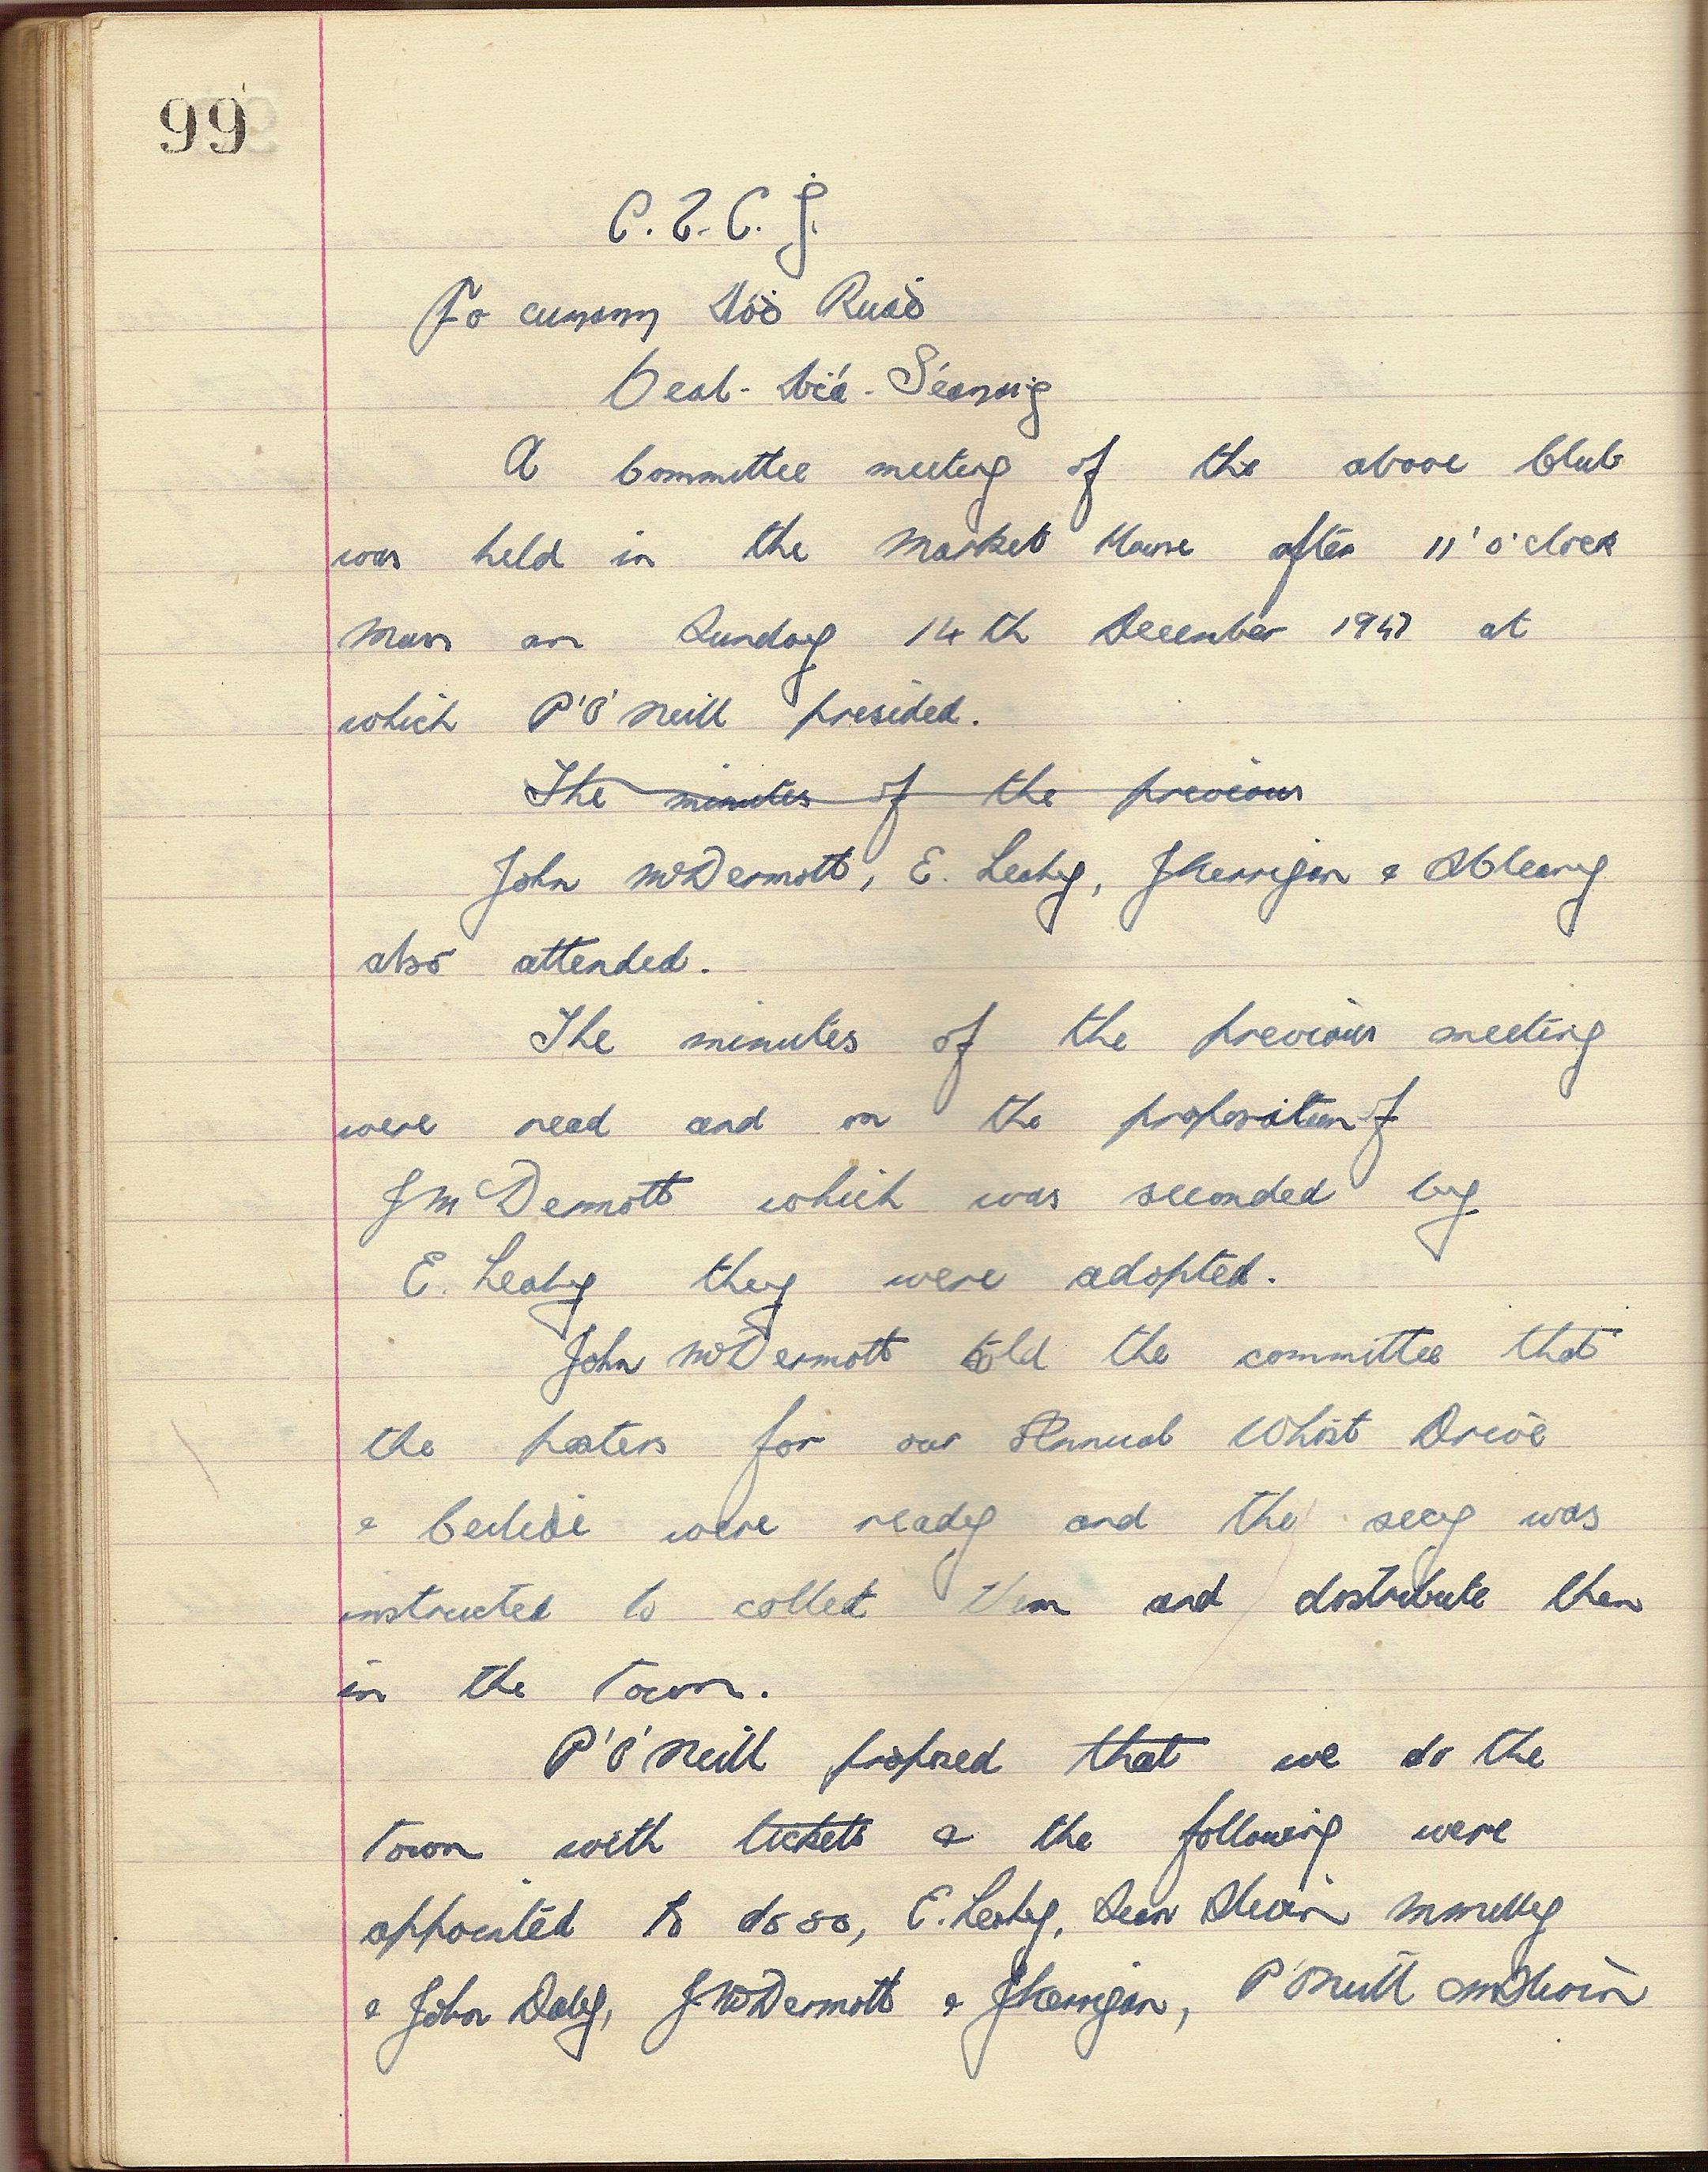 99
C. L. C. G.
Fo cumann Aóḋ Ruaḋ
Beal-Áṫa-Seanaiġ
A Committee meeting of the above Club
was held in the Market House after 11'o'clock
Mass on Sunday 14th December 1947 at
which P'O'Neill presided.
The minutes of the previous
John McDermott, E. Leahy, J Kerrigan & S Cleary
also attended.
The minutes of the previous meeting
were read and on the proposition of
J McDermott which was seconded by
E. Leahy they were adopted.
John McDermott told the committee that
the posters for our Annual Whist Drive
& Ceilidi were ready and the secy was
instructed to collect them and distribute them
in the Town.
P'O'Neill proposed that we do the
Town with tickets & the following were
appointed to do so, E. Leahy, Sean Slevin
& John Daly, J McDermott & J Kerrigan, P O'Neill Slevin